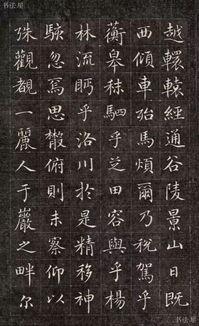 书法屋
越轘轅經通谷陵景山日既
西傾車殆馬煩爾乃税駕乎
蘅皋秣駟乎芝田容與乎楊
林流眄乎洛川於是精移神
駭忽焉思散俯則未察仰以
殊觀覩一麗人于巖之畔尔
书法屋